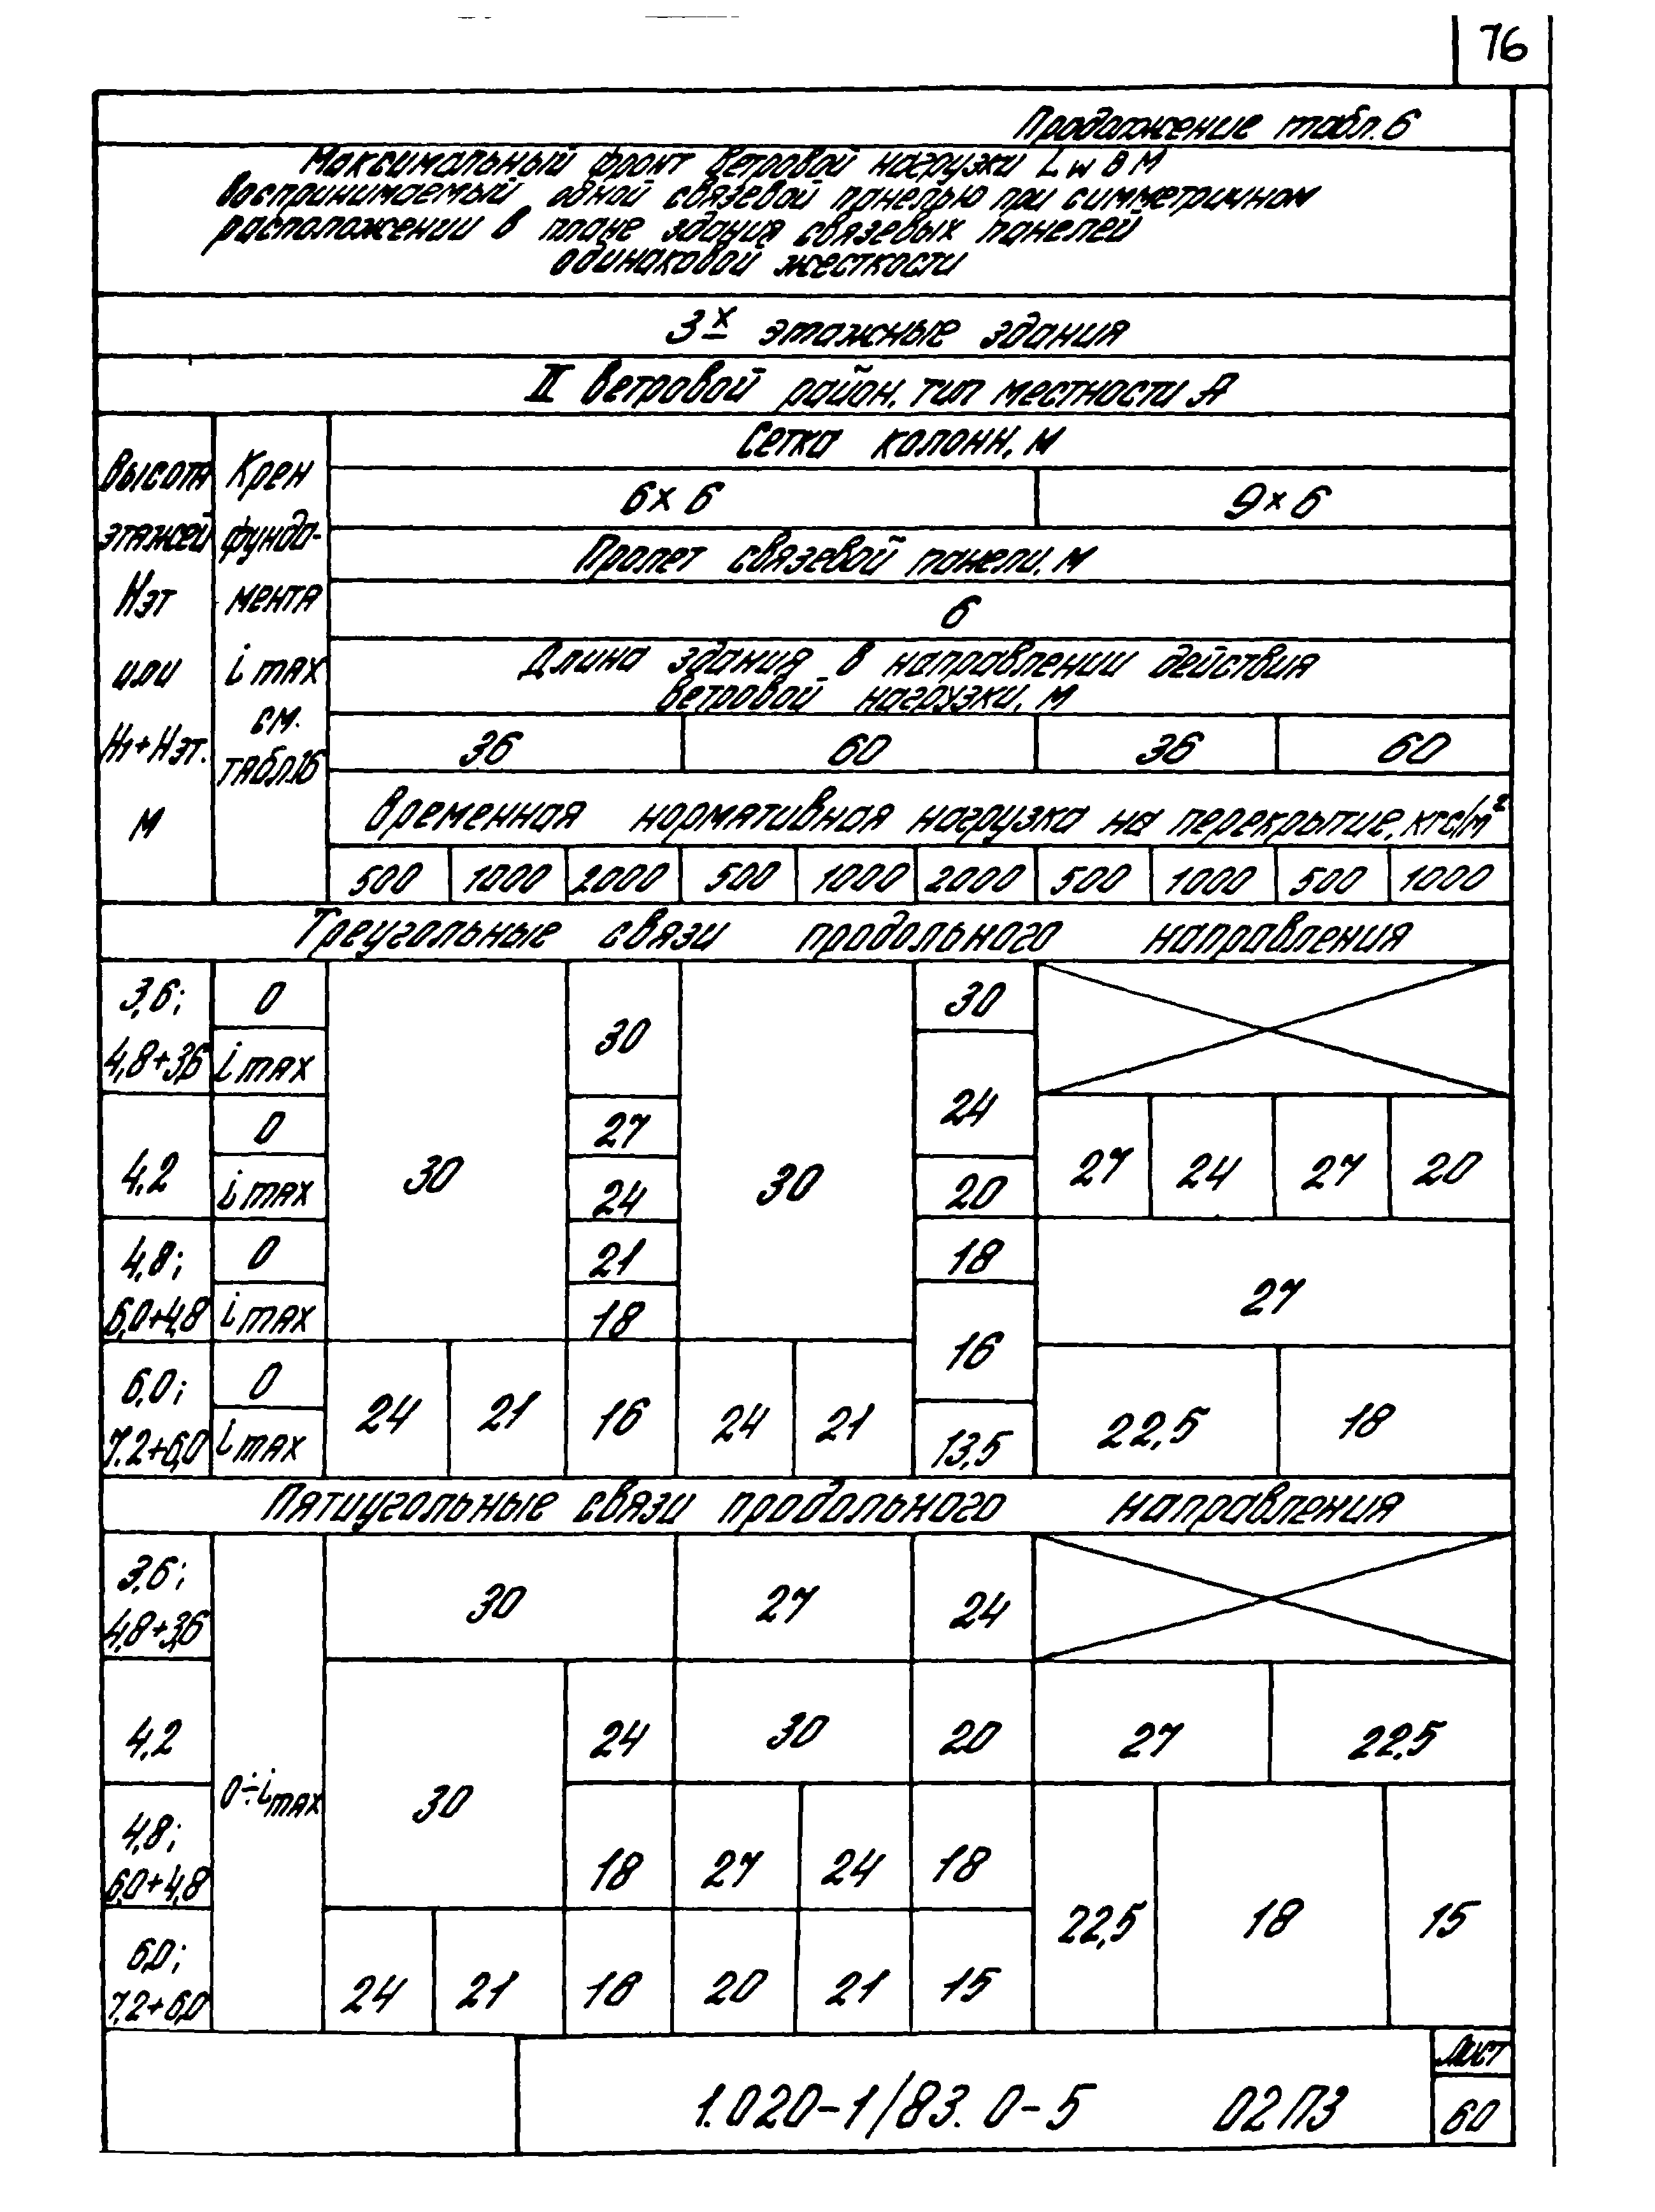 76
Продолжение табл. 6
Максимальный фронт ветровой нагрузки Lw в м
воспринимаемый одной связевой панелью при симметричном
расположении в плане здания связевых панелей
одинаковой жесткости
3х этажные здания
II ветровой район, тип местности А
Высота этажей Нэт или Н1+Нэт. м
Крен фунда-мента i max см. табл.16
Сетка колонн, м
6×6 9×6
Пролет связевой панели, м
6
Длина здания в направлении действия
ветровой нагрузки, м
36 60 36 60
Временная нормативная нагрузка на перекрытие, кгс/м²
500 1000 2000 500 1000 2000 500 1000 500 1000
Треугольные связи продольного направления
3,6; 0 30 30
4,8+3,6 i max 24
4,2 0 30 27 30 27 24 27 20
i max 24 20
4,8; 0 21 18 27
6,0+4,8 i max 18 16
6,0; 0 24 21 16 24 21 22,5 18
7.2+6,0 i max 13,5
Пятиугольные связи продольного направления
3,6; 30 27 24
4,8+3,6
4,2 24 30 20 27 22,5
0÷i max 30
4,8; 18 27 24 18 22,5 18 15
6,0+4,8
6,0; 24 21 18 20 21 15
7,2+6,0
1.020-1/83. 0-5 02ПЗ
Лист
60